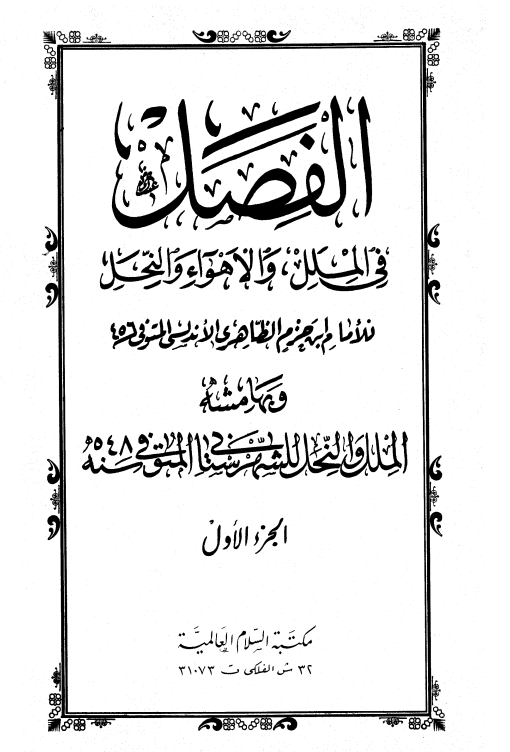 الفصل
في الملل، والاهواء والنحل
للأمام ابن حزم الظاهري الأندلسي المتوفى ٤٥٦
وبهامشه
الملل والنحل للشهرستاني المتوفى سنه ٥٤٨
الجزء الأول
مكتبة السلام العالمية
٣٢ ش الفلكى ت ٣١٠٧٣